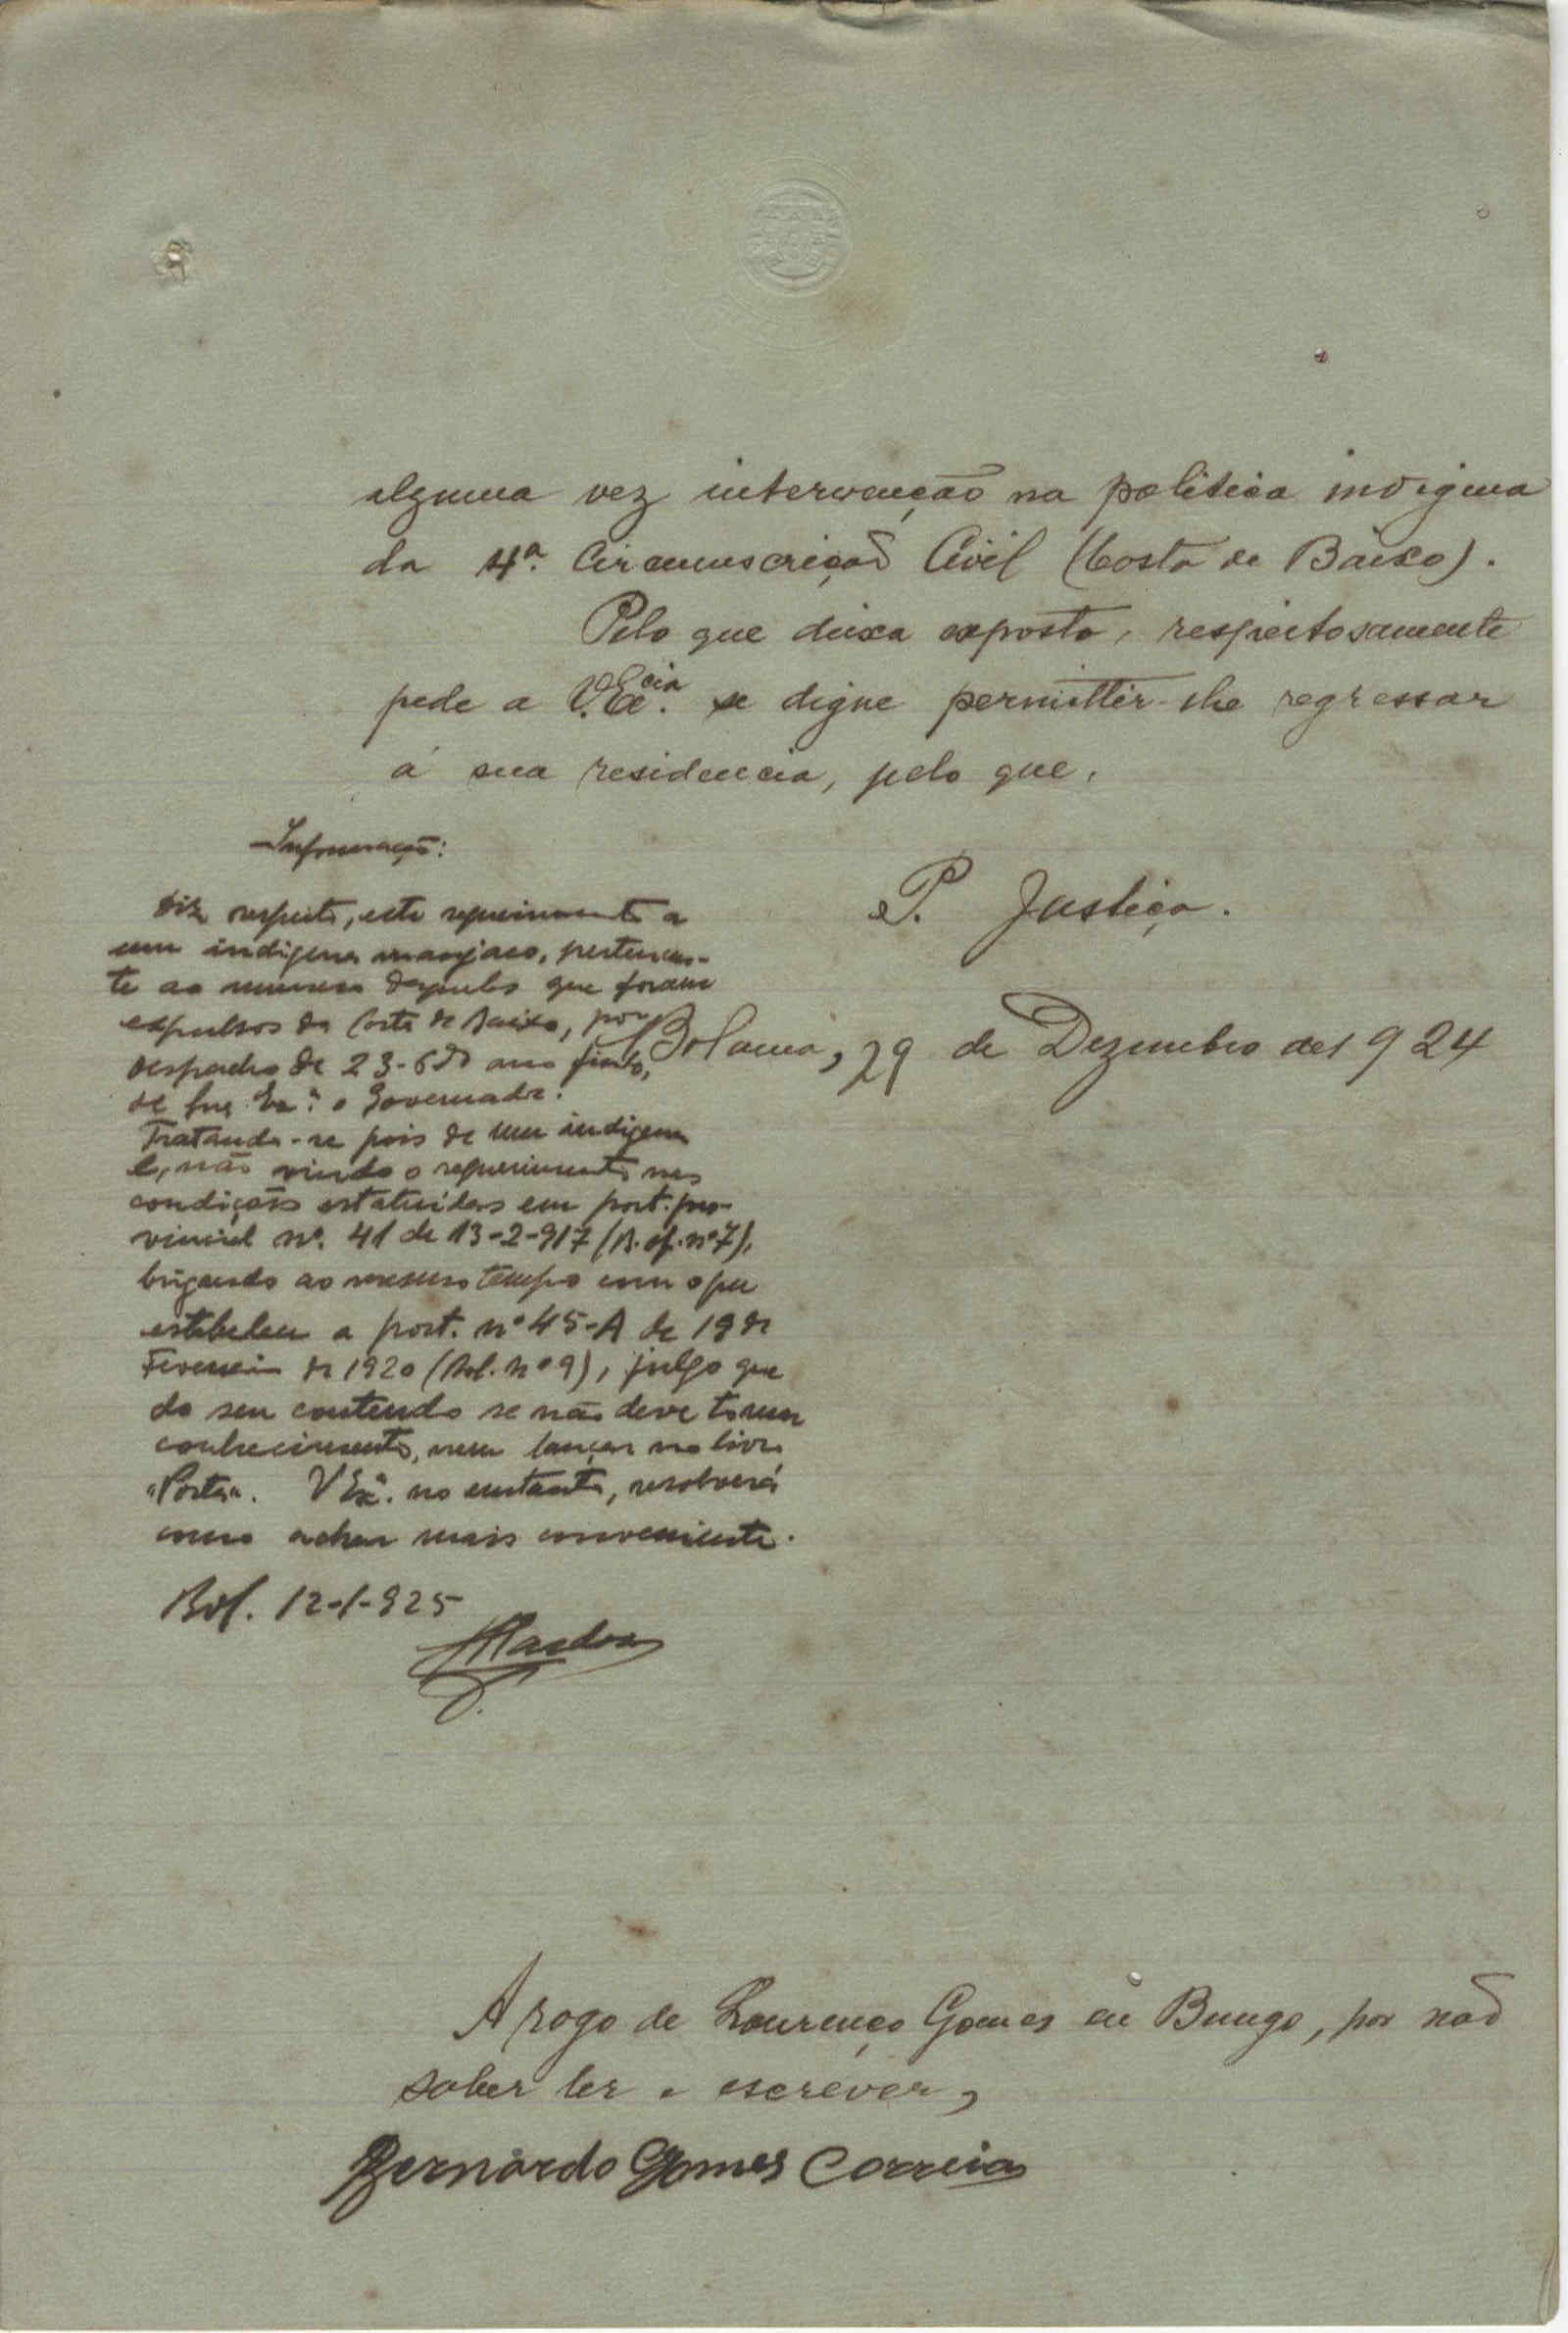 alguma vez intervenção na politica indigena
da 4ª. Circumscrição Civil (Costa de Baixo).
Pelo que deixa exposto, respeitosamente
pede a V. Excia. se digne permittir-lhe regressar
á sua residencia, pelo que,
P. Justiça.
Bolama, 29 de Dezembro de 1924
Informação:
Diz respeito, este requerimento a
um indigena manjaco, perten-
te ao numero daqueles que foram
expulsos da Costa de Baixo, por
despacho de 23-6 do ano findo,
de Sua Exª. o Governador.
Tratando-se pois de um indigena
e, não vindo o requerimento nas
condições estatuidas em port. pro-
vincial nº. 41 de 13-2-917 (B. of. nº 7),
brigando ao mesmo tempo com o que
estabelece a port. nº 45-A de 19 de
Fevereiro de 1920 (Bol. nº 9), julgo que
do seu conteudo se não deve tomar
conhecimento, nem lançar no livro
"Porta". V Exª. no entanto, resolverá
como achar mais conveniente.
Bol. 12-1-925
A rogo de Lourenço Gomes Bungo, por não
saber ler e escrever,
Bernardo Gomes Correia